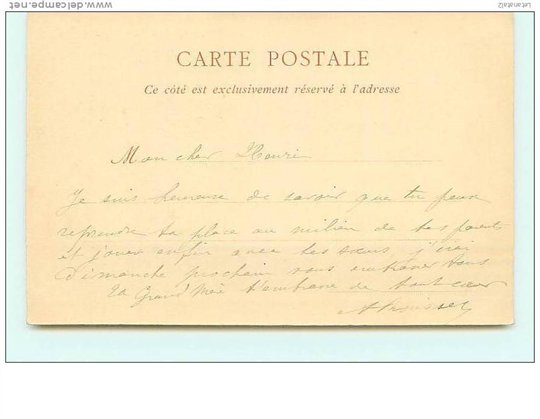 www.delcampe.net
CARTE POSTALE
Ce côté est exclusivement réservé à l'adresse
Mon cher Henri
Je suis heureuse de savoir que tu peux
reprendre ta place au milieu de tes parents
et jouer enfin avec tes sœurs j'irai
Dimanche prochain vous embrasser tous
ta Grand Mère t'embrasse de tout cœur